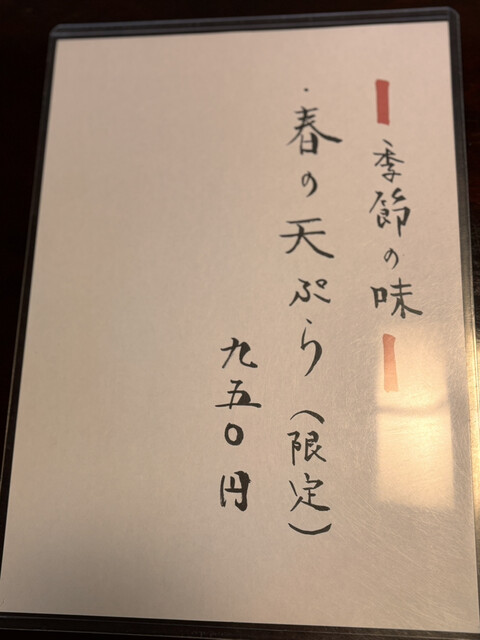 季節の味
・春の天ぷら(限定)
九五〇円